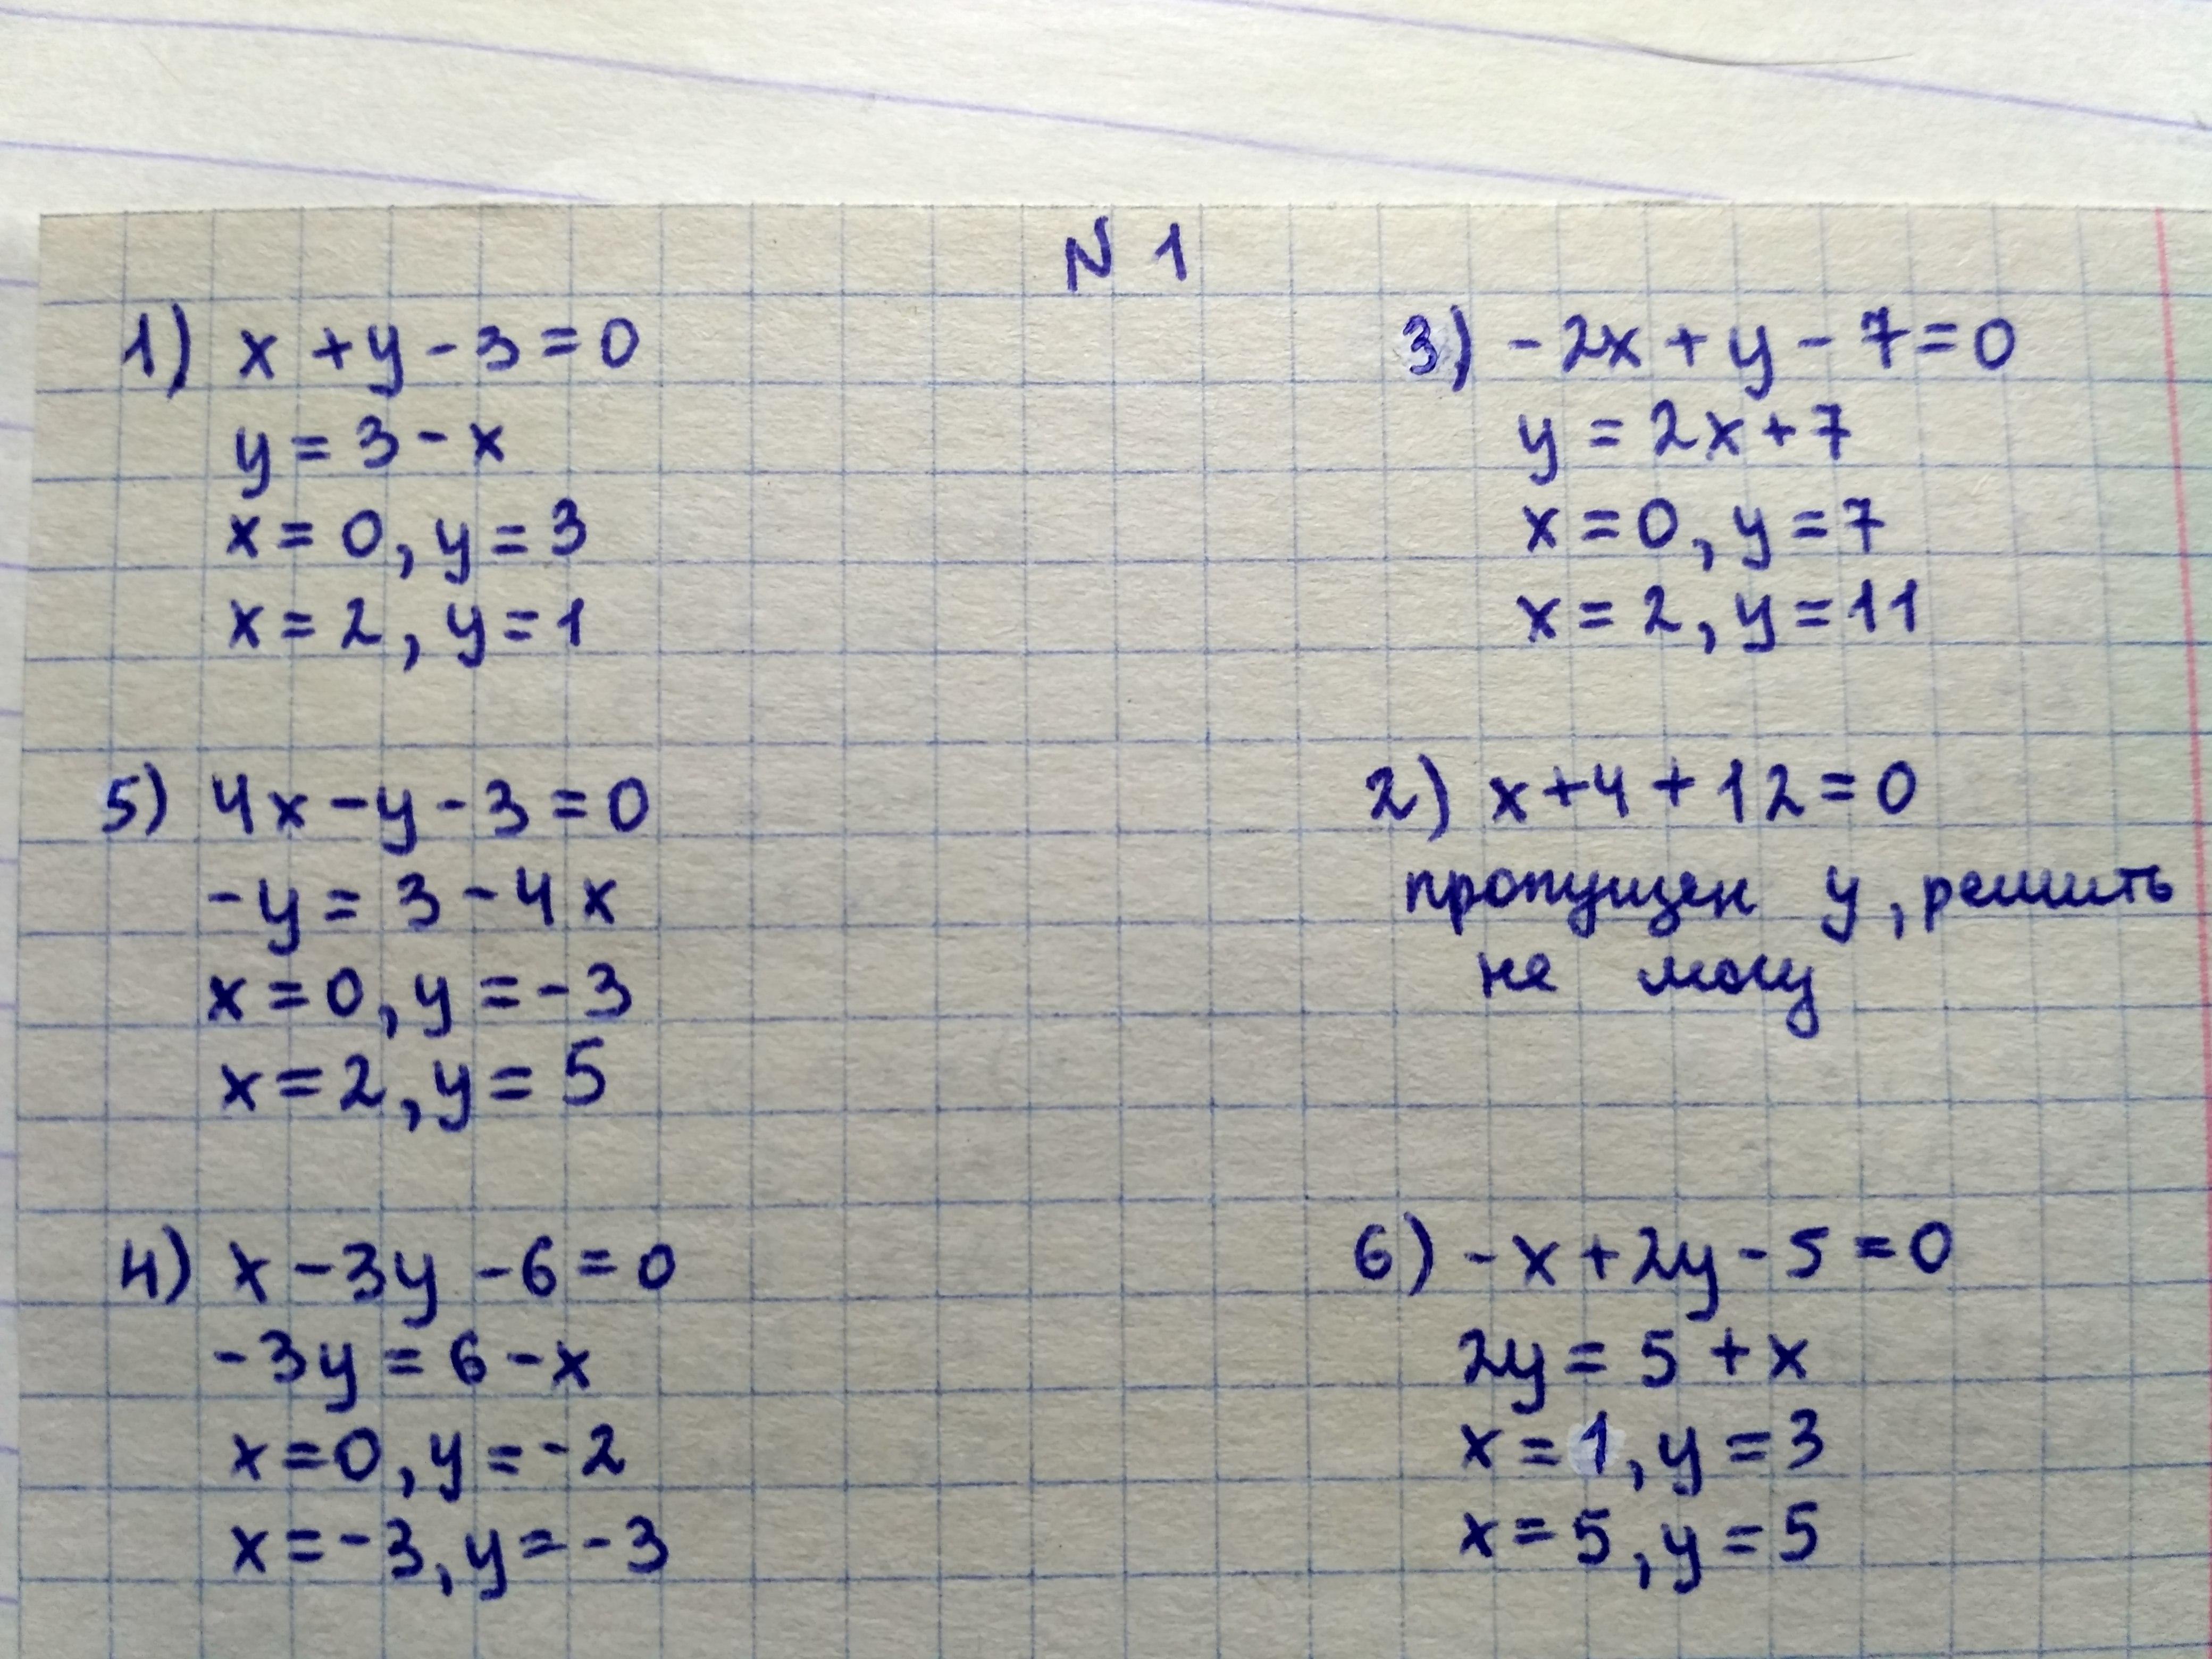 N 1
1) x + y - 3 = 0
y = 3 - x
x = 0, y = 3
x = 2, y = 1
3) - 2x + y - 7 = 0
y = 2x + 7
x = 0, y = 7
x = 2, y = 11
5) 4x - y - 3 = 0
- y = 3 - 4x
x = 0, y = -3
x = 2, y = 5
2) x + 4 + 12 = 0
пропущен y, решить
не могу
4) x - 3y - 6 = 0
- 3y = 6 - x
x = 0, y = -2
x = -3, y = -3
6) - x + 2y - 5 = 0
2y = 5 + x
x = 1, y = 3
x = 5, y = 5